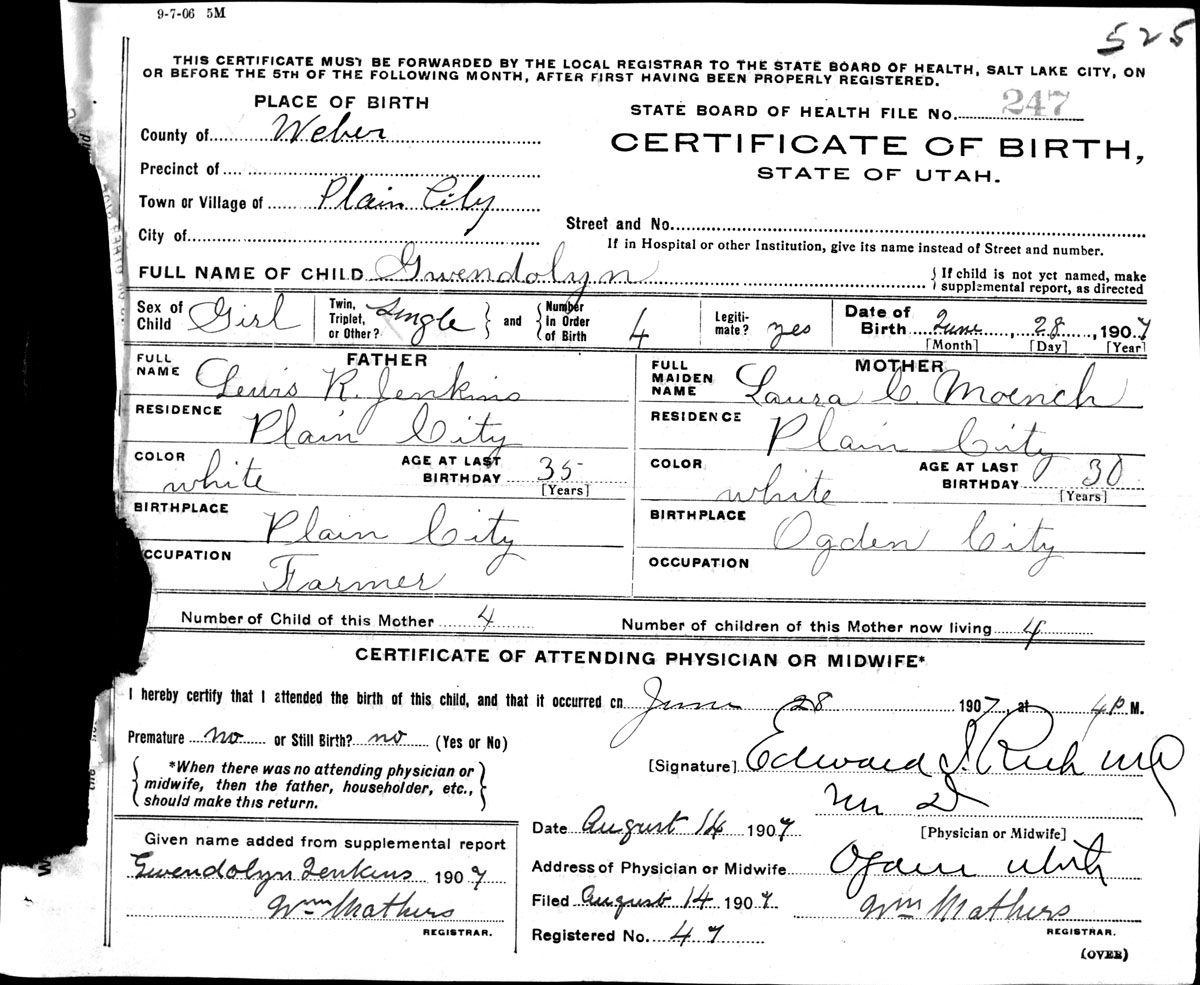 9-7-06 5M
525
THIS CERTIFICATE MUST BE FORWARDED BY THE LOCAL REGISTRAR TO THE STATE BOARD OF HEALTH, SALT LAKE CITY, ON
OR BEFORE THE 5TH OF THE FOLLOWING MONTH, AFTER FIRST HAVING BEEN PROPERLY REGISTERED.
PLACE OF BIRTH
STATE BOARD OF HEALTH FILE No. 247
County of Weber
CERTIFICATE OF BIRTH,
STATE OF UTAH.
Precinct of
Town or Village of Plain City
Street and No.
City of
If in Hospital or other Institution, give its name instead of Street and number.
FULL NAME OF CHILD Gwendolyn
{ If child is not yet named, make
supplemental report, as directed
Sex of Child Girl
Twin, Triplet, or Other? Single } and { Number In Order of Birth 4
Legiti-mate? yes
Date of Birth June, 28, 1907
[Month] [Day] [Year]
FATHER
FULL NAME Lewis R. Jenkins
RESIDENCE Plain City
COLOR white
AGE AT LAST BIRTHDAY 35
[Years]
BIRTHPLACE Plain City
OCCUPATION Farmer
MOTHER
FULL MAIDEN NAME Laura C. Moench
RESIDENCE Plain City
COLOR white
AGE AT LAST BIRTHDAY 30
[Years]
BIRTHPLACE Ogden City
OCCUPATION
Number of Child of this Mother 4
Number of children of this Mother now living 4
CERTIFICATE OF ATTENDING PHYSICIAN OR MIDWIFE*
I hereby certify that I attended the birth of this child, and that it occurred on June 28 1907, at 4 P. M.
Premature no or Still Birth? no (Yes or No)
[Signature] Edward I. Rich MD
{ *When there was no attending physician or
midwife, then the father, householder, etc.,
should make this return. }
M D
[Physician or Midwife]
Date August 14 1907
Given name added from supplemental report
Gwendolyn Jenkins 1907
Wm Mathers
REGISTRAR.
Address of Physician or Midwife Ogden Utah
Filed August 14 1907
Wm Mathers
REGISTRAR.
Registered No. 47
(OVER)